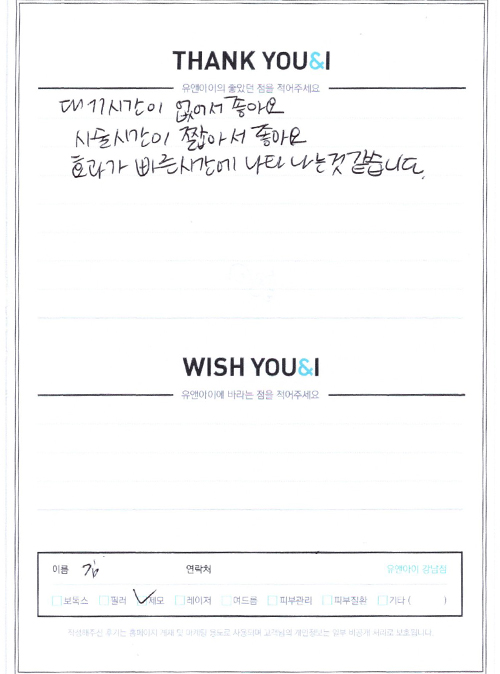 THANK YOU&I
유앤아이의 좋았던 점을 적어주세요
대기시간이 없어서 좋아요
시술시간이 짧아서 좋아요
효과가 빠른시간에 나타나는것 같습니다.
WISH YOU&I
유앤아이에 바라는 점을 적어주세요
이름 김 연락처 유앤아이 강남점
보톡스 필러 제모 레이저 여드름 피부관리 피부질환 기타 ( )
작성해주신 후기는 홈페이지 게재 및 마케팅 용도로 사용되며 고객님의 개인정보는 일부 비공개 처리로 보호됩니다.